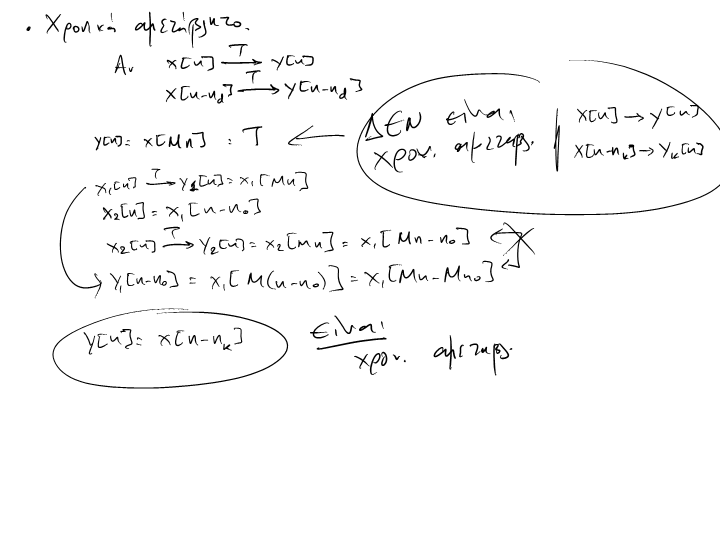 • Χρονικά αμετάβλητο.
Αν x[n] T→ y[n]
x[n-n_d] T→ y[n-n_d]
y[n] = x[Mn] : T ← ΔΕΝ είναι χρον. αμεταβ. | x[n] → y[n]
x[n-n_k] → y_k[n]
x₁[n] T→ y₁[n] = x₁[Mn]
x₂[n] = x₁[n-n₀]
x₂[n] T→ y₂[n] = x₂[Mn] = x₁[Mn-n₀]
y₁[n-n₀] = x₁[M(n-n₀)] = x₁[Mn-Mn₀]
y[n] = x[n-n_k] είναι
χρον. αμεταβ.